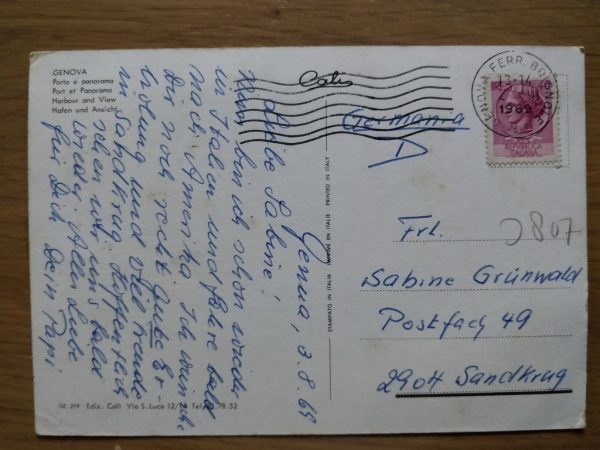 GENOVA
Porto e panorama
Port et Panorama
Harbour and View
Hafen und Ansicht
Genua, 3.8.69
Liebe Sabine!
Nun bin ich schon wieder
in Italien und fahre bald
nach Amerika. Ich wünsche
Dir noch recht gute Er-
holung und viel Freude
in Sandkrug. Hoffentlich
sehen wir uns bald
wieder. Alles Liebe
für Dich Dein Papi
GENOVA FERR. BRIGNOLE
13-14
1969
REPUBBLICA
ITALIANA
Germania
D
2807
Frl.
Sabine Grünwald
Postfach 49
2904 Sandkrug
STAMPATO IN ITALIA IMPRIMÉ EN ITALIE - PRINTED IN ITALY
GE 219 Ediz. Cali Via S. Luca 12/ Tel. 78.52